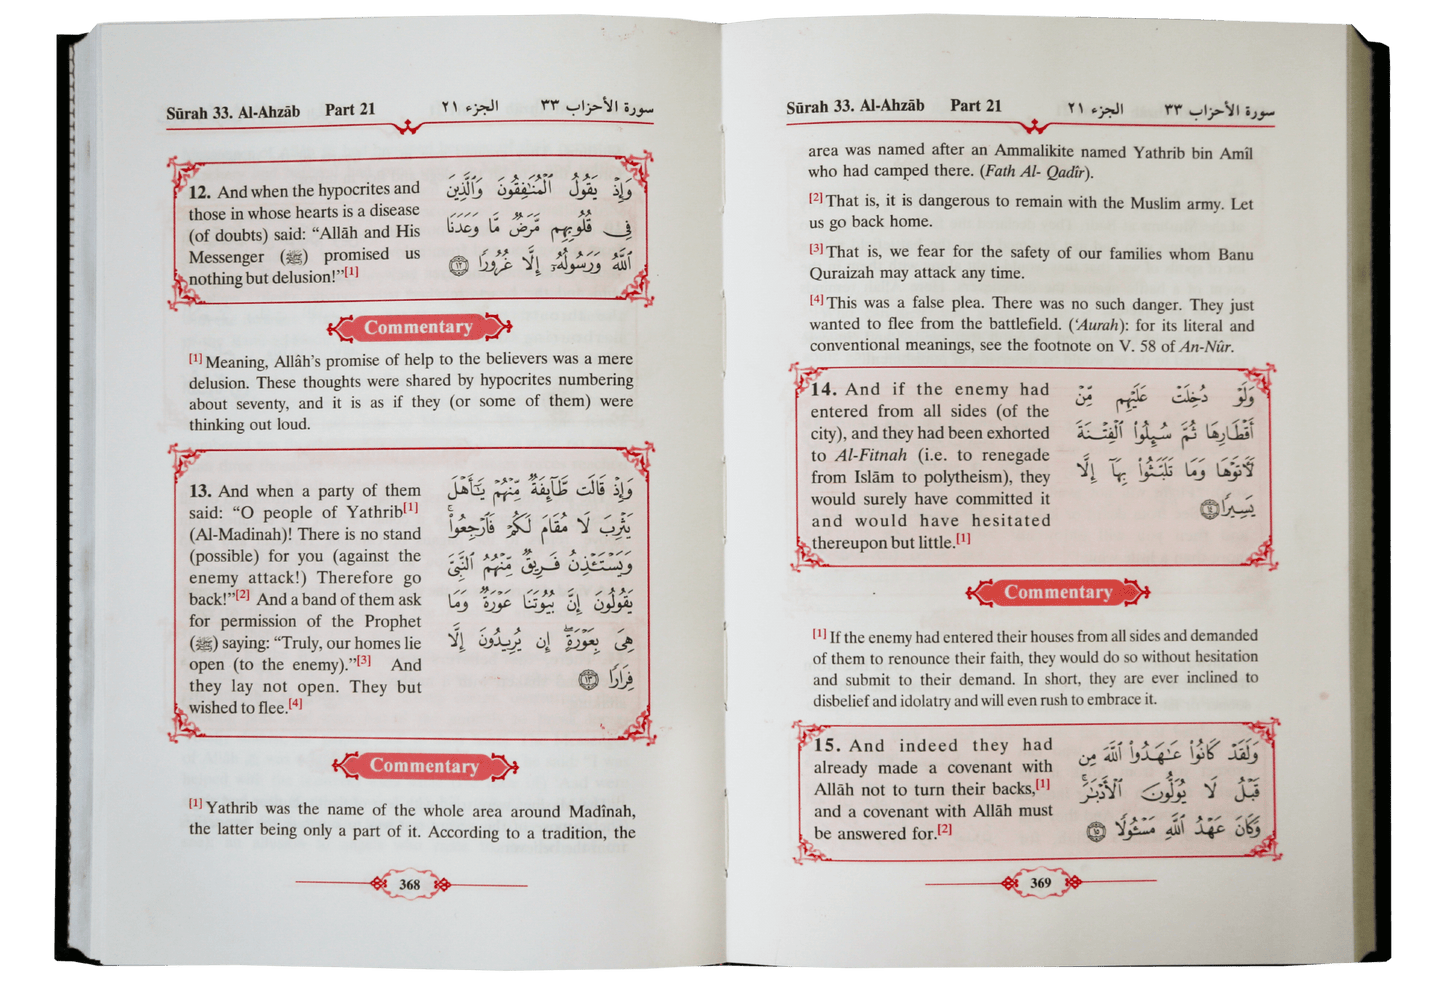 Sūrah 33. Al-Ahzāb Part 21 الجزء ٢١ سورة الأحزاب ٣٣
12. And when the hypocrites and
those in whose hearts is a disease
(of doubts) said: “Allāh and His
Messenger (ﷺ) promised us
nothing but delusion!”[1]
وَإِذْ يَقُولُ ٱلْمُنَـٰفِقُونَ وَٱلَّذِينَ
فِى قُلُوبِهِم مَّرَضٌ مَّا وَعَدَنَا
ٱللَّهُ وَرَسُولُهُۥٓ إِلَّا غُرُورًا ١٢
Commentary
[1] Meaning, Allâh’s promise of help to the believers was a mere
delusion. These thoughts were shared by hypocrites numbering
about seventy, and it is as if they (or some of them) were
thinking out loud.
13. And when a party of them
said: “O people of Yathrib[1]
(Al-Madinah)! There is no stand
(possible) for you (against the
enemy attack!) Therefore go
back!”[2] And a band of them ask
for permission of the Prophet
(ﷺ) saying: “Truly, our homes lie
open (to the enemy).”[3] And
they lay not open. They but
wished to flee.[4]
وَإِذْ قَالَت طَّآئِفَةٌ مِّنْهُمْ يَـٰٓأَهْلَ
يَثْرِبَ لَا مُقَامَ لَكُمْ فَٱرْجِعُوا۟ ۚ
وَيَسْتَـْٔذِنُ فَرِيقٌ مِّنْهُمُ ٱلنَّبِىَّ
يَقُولُونَ إِنَّ بُيُوتَنَا عَوْرَةٌ وَمَا
هِىَ بِعَوْرَةٍ ۖ إِن يُرِيدُونَ إِلَّا
فِرَارًا ١٣
Commentary
[1] Yathrib was the name of the whole area around Madînah,
the latter being only a part of it. According to a tradition, the
368
Sūrah 33. Al-Ahzāb Part 21 الجزء ٢١ سورة الأحزاب ٣٣
area was named after an Ammalikite named Yathrib bin Amîl
who had camped there. (Fath Al- Qadîr).
[2] That is, it is dangerous to remain with the Muslim army. Let
us go back home.
[3] That is, we fear for the safety of our families whom Banu
Quraizah may attack any time.
[4] This was a false plea. There was no such danger. They just
wanted to flee from the battlefield. (‘Aurah): for its literal and
conventional meanings, see the footnote on V. 58 of An-Nûr.
14. And if the enemy had
entered from all sides (of the
city), and they had been exhorted
to Al-Fitnah (i.e. to renegade
from Islām to polytheism), they
would surely have committed it
and would have hesitated
thereupon but little.[1]
وَلَوْ دُخِلَتْ عَلَيْهِم مِّنْ
أَقْطَارِهَا ثُمَّ سُئِلُوا۟ ٱلْفِتْنَةَ
لَـَٔاتَوْهَا وَمَا تَلَبَّثُوا۟ بِهَآ إِلَّا
يَسِيرًا ١٤
Commentary
[1] If the enemy had entered their houses from all sides and demanded
of them to renounce their faith, they would do so without hesitation
and submit to their demand. In short, they are ever inclined to
disbelief and idolatry and will even rush to embrace it.
15. And indeed they had
already made a covenant with
Allāh not to turn their backs,[1]
and a covenant with Allāh must
be answered for.[2]
وَلَقَدْ كَانُوا۟ عَـٰهَدُوا۟ ٱللَّهَ مِن
قَبْلُ لَا يُوَلُّونَ ٱلْأَدْبَـٰرَ ۚ
وَكَانَ عَهْدُ ٱللَّهِ مَسْـُٔولًا ١٥
369